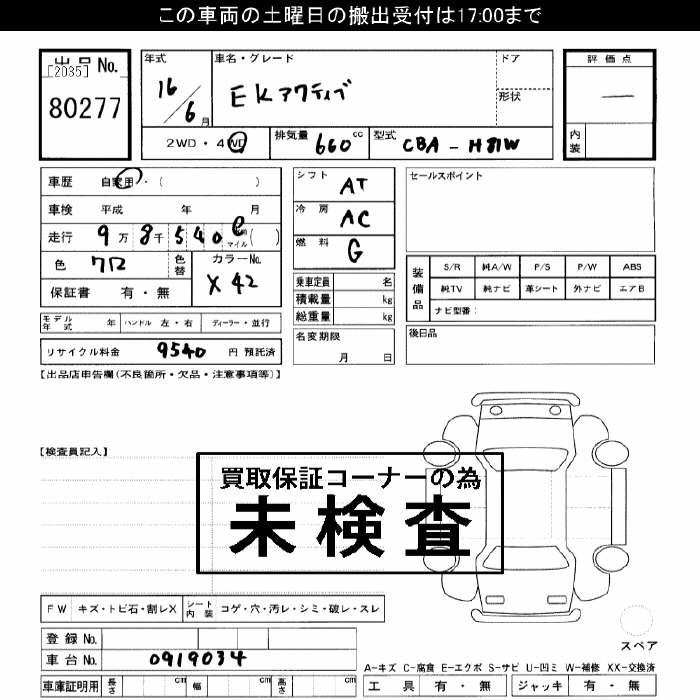 この車両の土曜日の搬出受付は17:00まで
出品 No.
[2035]
80277
年式 16/6月
車名・グレード EKアクティブ
ドア
形状
2WD・4WD
排気量 660cc
型式 CBA - H81W
評価点
—
内装
車歴 自家用・( )
車検 平成 年 月
走行 9万8千540 マイル( )
色 クロ
色替
カラーNo. X42
保証書 有・無
シフト AT
冷房 AC
燃料 G
乗車定員 名
積載量 kg
総重量 kg
セールスポイント
装備品
S/R 純A/W P/S P/W ABS
純TV 純ナビ 革シート 外ナビ エアB
ナビ型番:
モデル年式 年 ハンドル 左・右 ディーラー・並行
名変期限 月 日
後日品
リサイクル料金 9540 円 預託済
【出品店申告欄(不良箇所・欠品・注意事項等)】
【検査員記入】
買取保証コーナーの為
未検査
FW キズ・トビ石・割レX
シート内装 コゲ・穴・汚レ・シミ・破レ・スレ
登録 No.
車台 No. 0919034
スペア
車庫証明用 長さ cm 幅 cm 高さ cm
A-キズ C-腐食 E-エクボ S-サビ U-凹ミ W-補修 XX-交換済
工具 有・無 ジャッキ 有・無